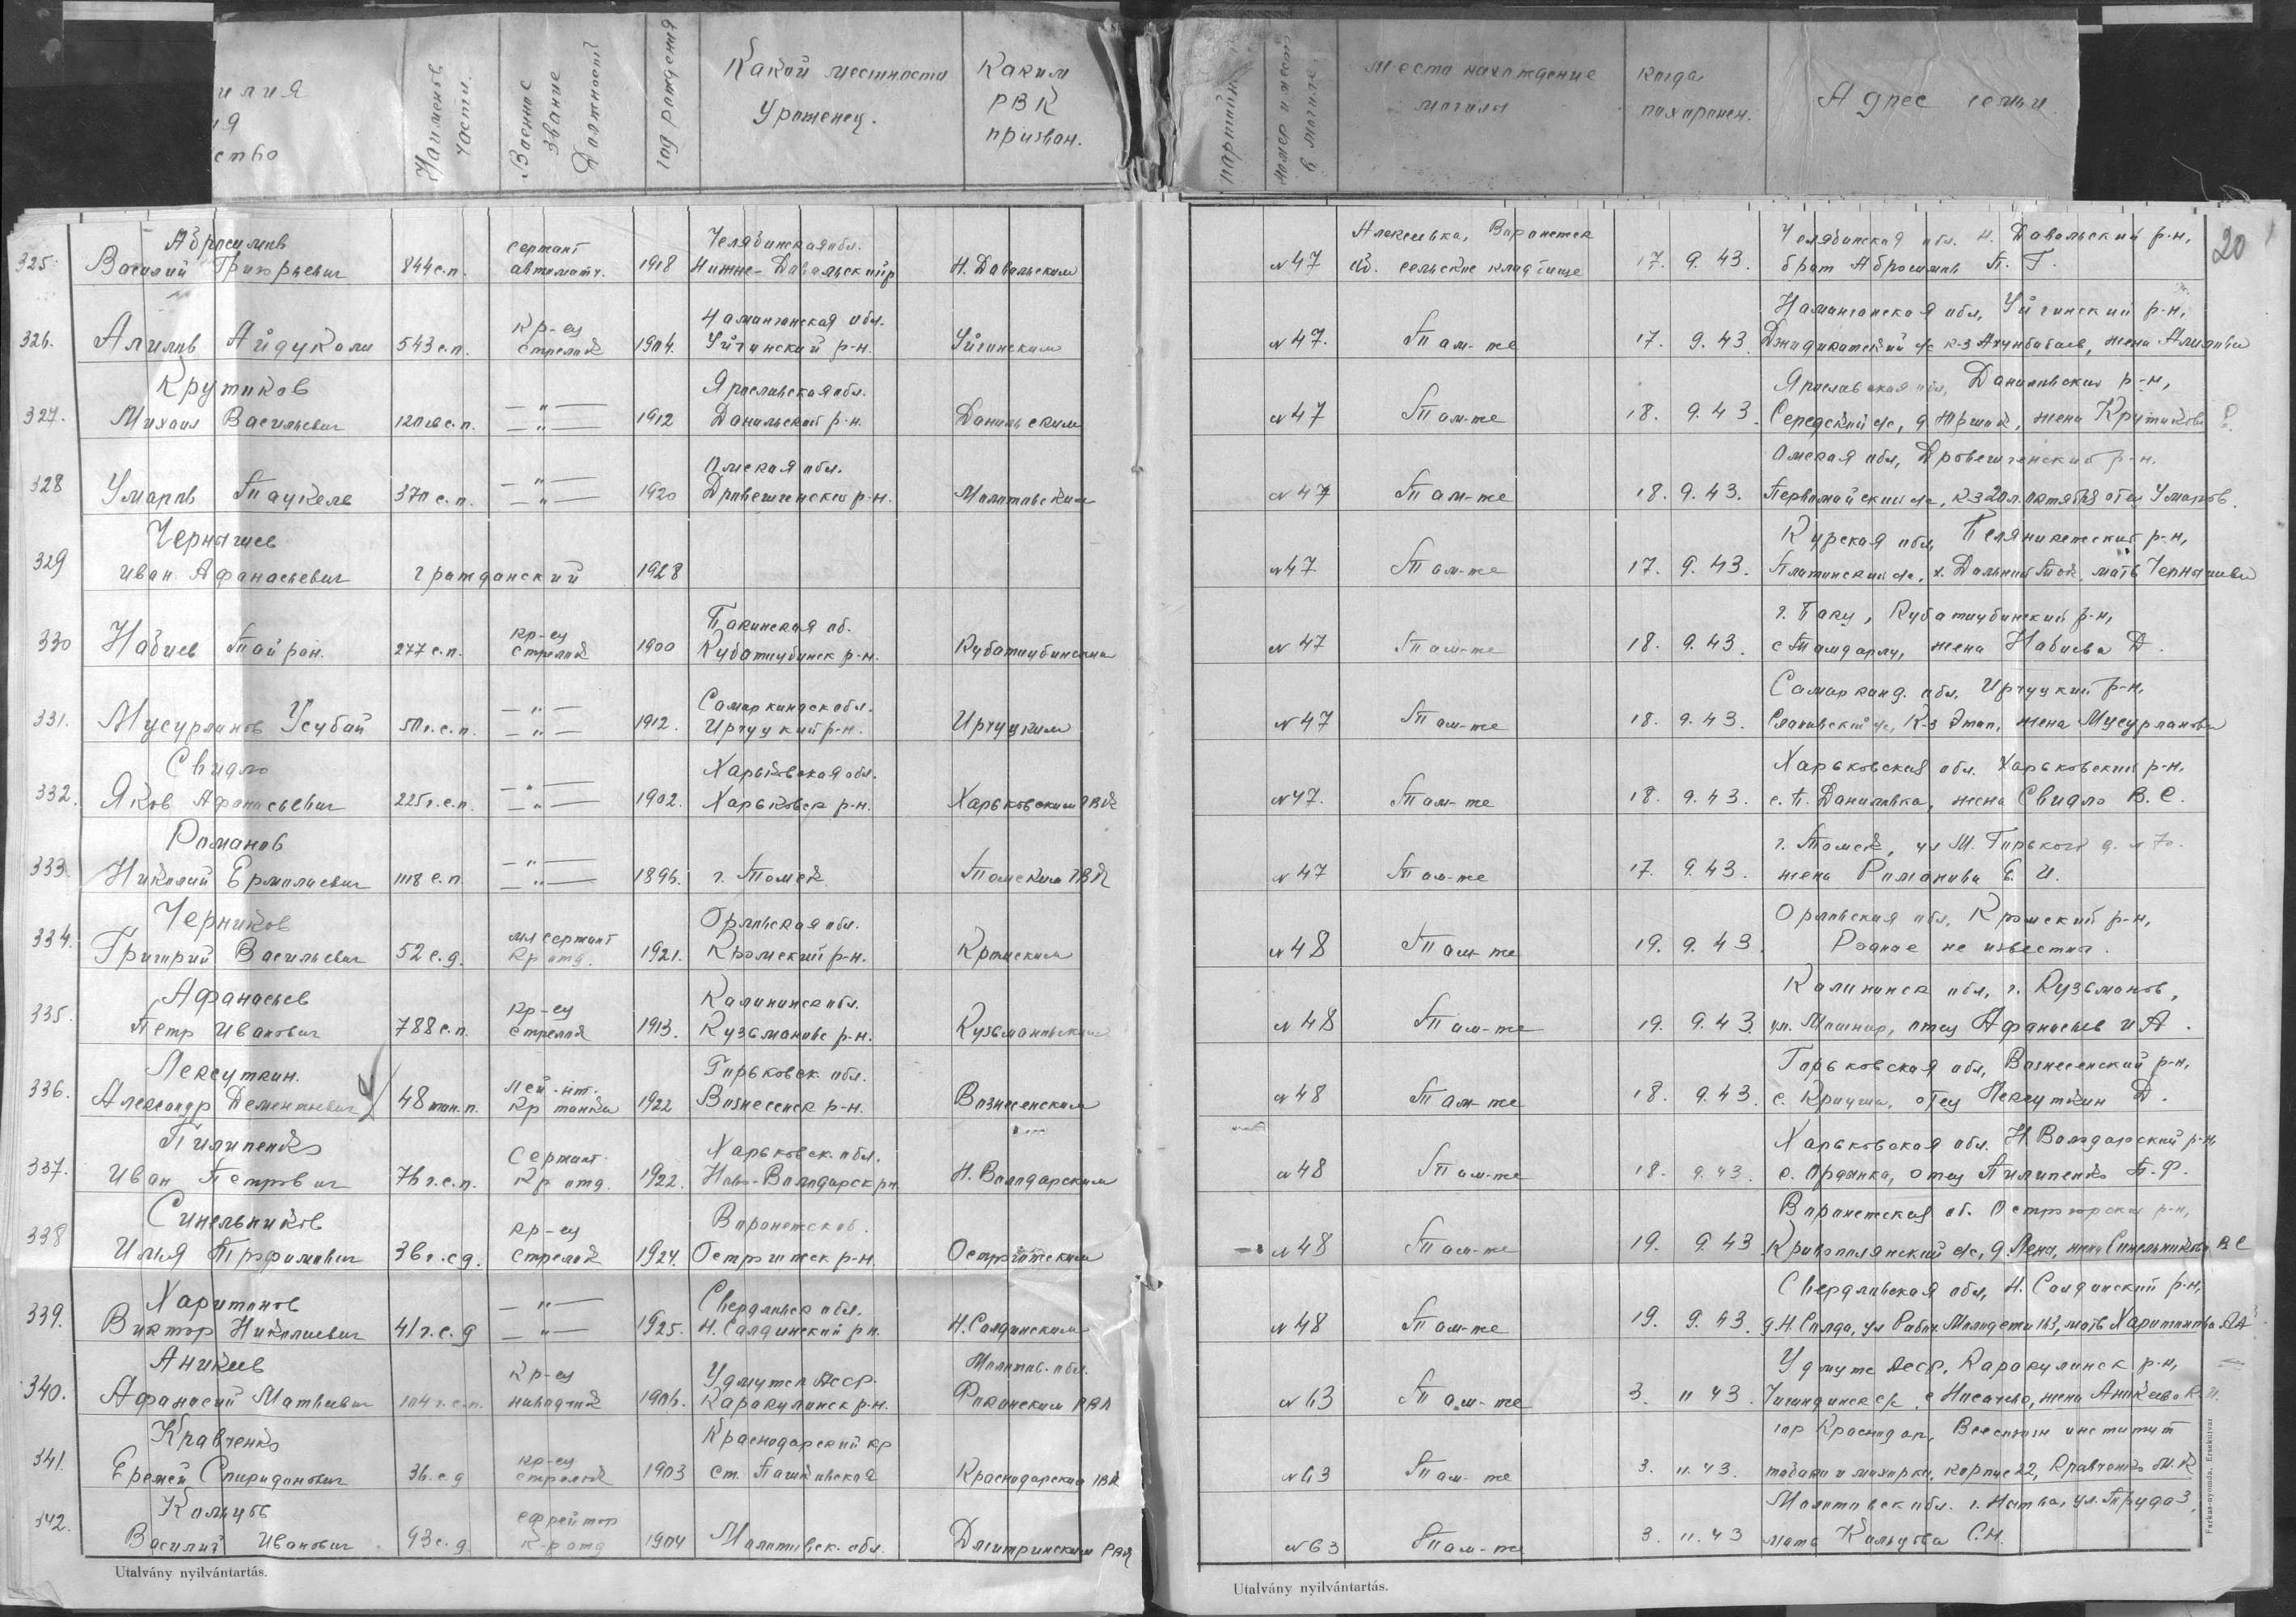 илия
ия
ество
Наименов части.
Военное звание Должность
год рождения
Какой местности уроженец.
Каким РВК призван.
партийн.
номер и место в могиле.
Место нахождение могилы
когда похоронен.
Адрес семьи
20
Абросимов
325. Василий Григорьевич 844 с.п. сержант автоматч. 1918 Челябинская обл. Нижне-Давальский р Н. Давальским
N 47 Алексеевка, Воронежск сельское кладбище 17. 9. 43. Челябинская обл. Н. Давальский р-н, брат Абросимов П. Г.
326. Алилов Айдукали 543 с.п. кр-ец стрелок 1904. Наманганская обл. Уйчинский р-н. Уйчинским
N 47. Там-же 17. 9. 43 Наманганская обл, Уйчинский р-н, к-з Ахунбабаев, жена
Крутиков
327. Михаил Васильевич с.п. —"— —"— 1912 Ярославская обл. Данильский р-н. Данильским
N 47 Там-же 18. 9. 43. Ярославская обл, Даниловский р-н, Середский с/с, жена Крутикова
328 Умаров Таукель 370 с.п. —"— —"— 1920 Омская обл. р-н. Молотовским
N 47 Там-же 18. 9. 43. Омская обл, р-н. Первомайский с/с, к-з 20 л. октября отец Умаров.
Чернышев
329 Иван Афанасьевич гражданский 1928
N 47 Там-же 17. 9. 43. Курская обл, р-н, мать Чернышева
330 Набиев Тайрон. 277 с.п. кр-ец стрелок 1900 Бакинская об. Кубатлубинск р-н. Кубатлубинским
N 47 Там-же 18. 9. 43. г. Баку, Кубатлубинский р-н, жена Набиева Д.
331. Мусурманов Усубай с.п. —"— —"— 1912. Самаркандск обл. Ургуцкий р-н. Ургуцким
N 47 Там-же 18. 9. 43. Самарканд. обл, Ургуцкий р-н, к-з Этап, жена
Свидло
332. Яков Афанасьевич 225 г.с.п. —"— —"— 1902. Харьковская обл. Харьковск р-н. Харьковским РВК
N 47. Там-же 18. 9. 43. Харьковская обл. Харьковский р-н, с. П. Даниловка, жена Свидло В. С.
Романов
333. Николай Ермолаевич 1118 с.п. —"— —"— 1896. г. Томск Томским РВК
N 47 Там-же 17. 9. 43. г. Томск, ул М. Горького д. N 70. жена Романова Е. И.
Черников
334. Григорий Васильевич 52 с.д. мл сержант кр отд. 1921. Орловская обл. Кромский р-н. Кромским
N 48 Там-же 19. 9. 43. Орловская обл, Кромский р-н, Родное не известно.
Афанасьев
335. Петр Иванович 788 с.п. кр-ец стрелок 1913. Калининск обл. Кузьмановс р-н. Кузьмановским
N 48 Там-же 19. 9. 43. Калининск обл, г. Кузьманов, ул. отец Афанасьев И А.
Лексуткин.
336. Александр Дементьевич 48 тан.п. лей-нт. кр танка 1922 Горьковск. обл. Вознесенск р-н. Вознесенским
N 48 Там-же 18. 9. 43. Горьковская обл, Вознесенский р-н, с. Криуша, отец Лексуткин Д.
Пилипенко
337. Иван Петрович 76 г.с.п. Сержант. Кр отд. 1922. Харьковск. обл. Ново-Володарск рн. Н. Володарским
N 48 Там-же 18. 9. 43 Харьковская обл. Н. Володарский р-н, отец Пилипенко П. Ф.
Синельников
338 Илья Трофимович 36 г.с.д. кр-ец стрелок 1924. Воронежск об. Острогожск р-н. Острогожским
N 48 Там-же 19. 9. 43 Воронежская об. р-н, Кривополянский с/с, жена Синельникова В С
Харитонов
339. Виктор Николаевич 41 г.с.д —"— —"— 1925. Свердловск обл. Н. Салдинский р н. Н. Салдинским
N 48 Там-же 19. 9. 43. Свердловская обл, Н. Салдинский р-н, д. Н. Салда, ул Рабоч. Молодежи 163, мать Харитонова
Аникеев
340. Афанасий Матвеевич 104 г.с.п. кр-ец наводчик 1906. Удмутск АССР Каракулинск р-н. Молотов. обл. Фокинским РВК
N 63 Там-же 3. 11 43 Удмутс АССР, Каракулинск р-н, жена Аникеева К
Кравченко
341. Еремей Спиридонович с.д кр-ец стрелок 1903 Краснодарский кр ст. Пашковская Краснодарским РВК
N 63 Там-же 3. 11. 43. гор Краснодар, Всесоюзн институт табака и махорки, корпус 22, Кравченко М. К
Кольцов
342. Василий Иванович 93 с.д. ефрейтор К-р отд 1904 Молотовск. обл. РВК
N 63 Там-же 3. 11. 43 Молотовск обл. г. Нытва, ул. Труда 3, мать Кольцова С.Н.
Utalvány nyilvántartás.
Utalvány nyilvántartás.
Farkas-nyomda, Érsekújvár